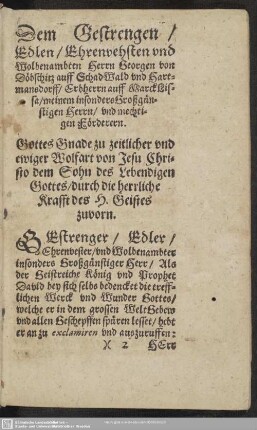 Dem Gestrengen /
Edlen / Ehrenvehsten vnd
Wolbenambten Herrn Georgen von
Döbschitz auff SchadWald vnd Hart-
mansdorff / Erbherrn auff Marcklis-
sa / meinem insonders Großgün-
stigen Herrn / vnd mechti-
gen Förderern.
Gottes Gnade zu zeitlicher vnd
ewiger Wolfart von Jesu Chri-
sto dem Sohn des Lebendigen
Gottes / durch die herrliche
Krafft des H. Geistes
zuvorn.
GEstrenger / Edler /
Ehrenvester / vnd Wolbenambter
insonders Großgünstiger Herr / Als
der Geistreiche König vnd Prophet
David bey sich selbs bedencket die treff-
lichen Werck vnd Wunder Gottes /
welche er in dem grossen WeltGebew
vnd allen Geschepffen spüren lesset / hebt
er an zu exclamiren vnd auszuruffen:
X 2 HErr